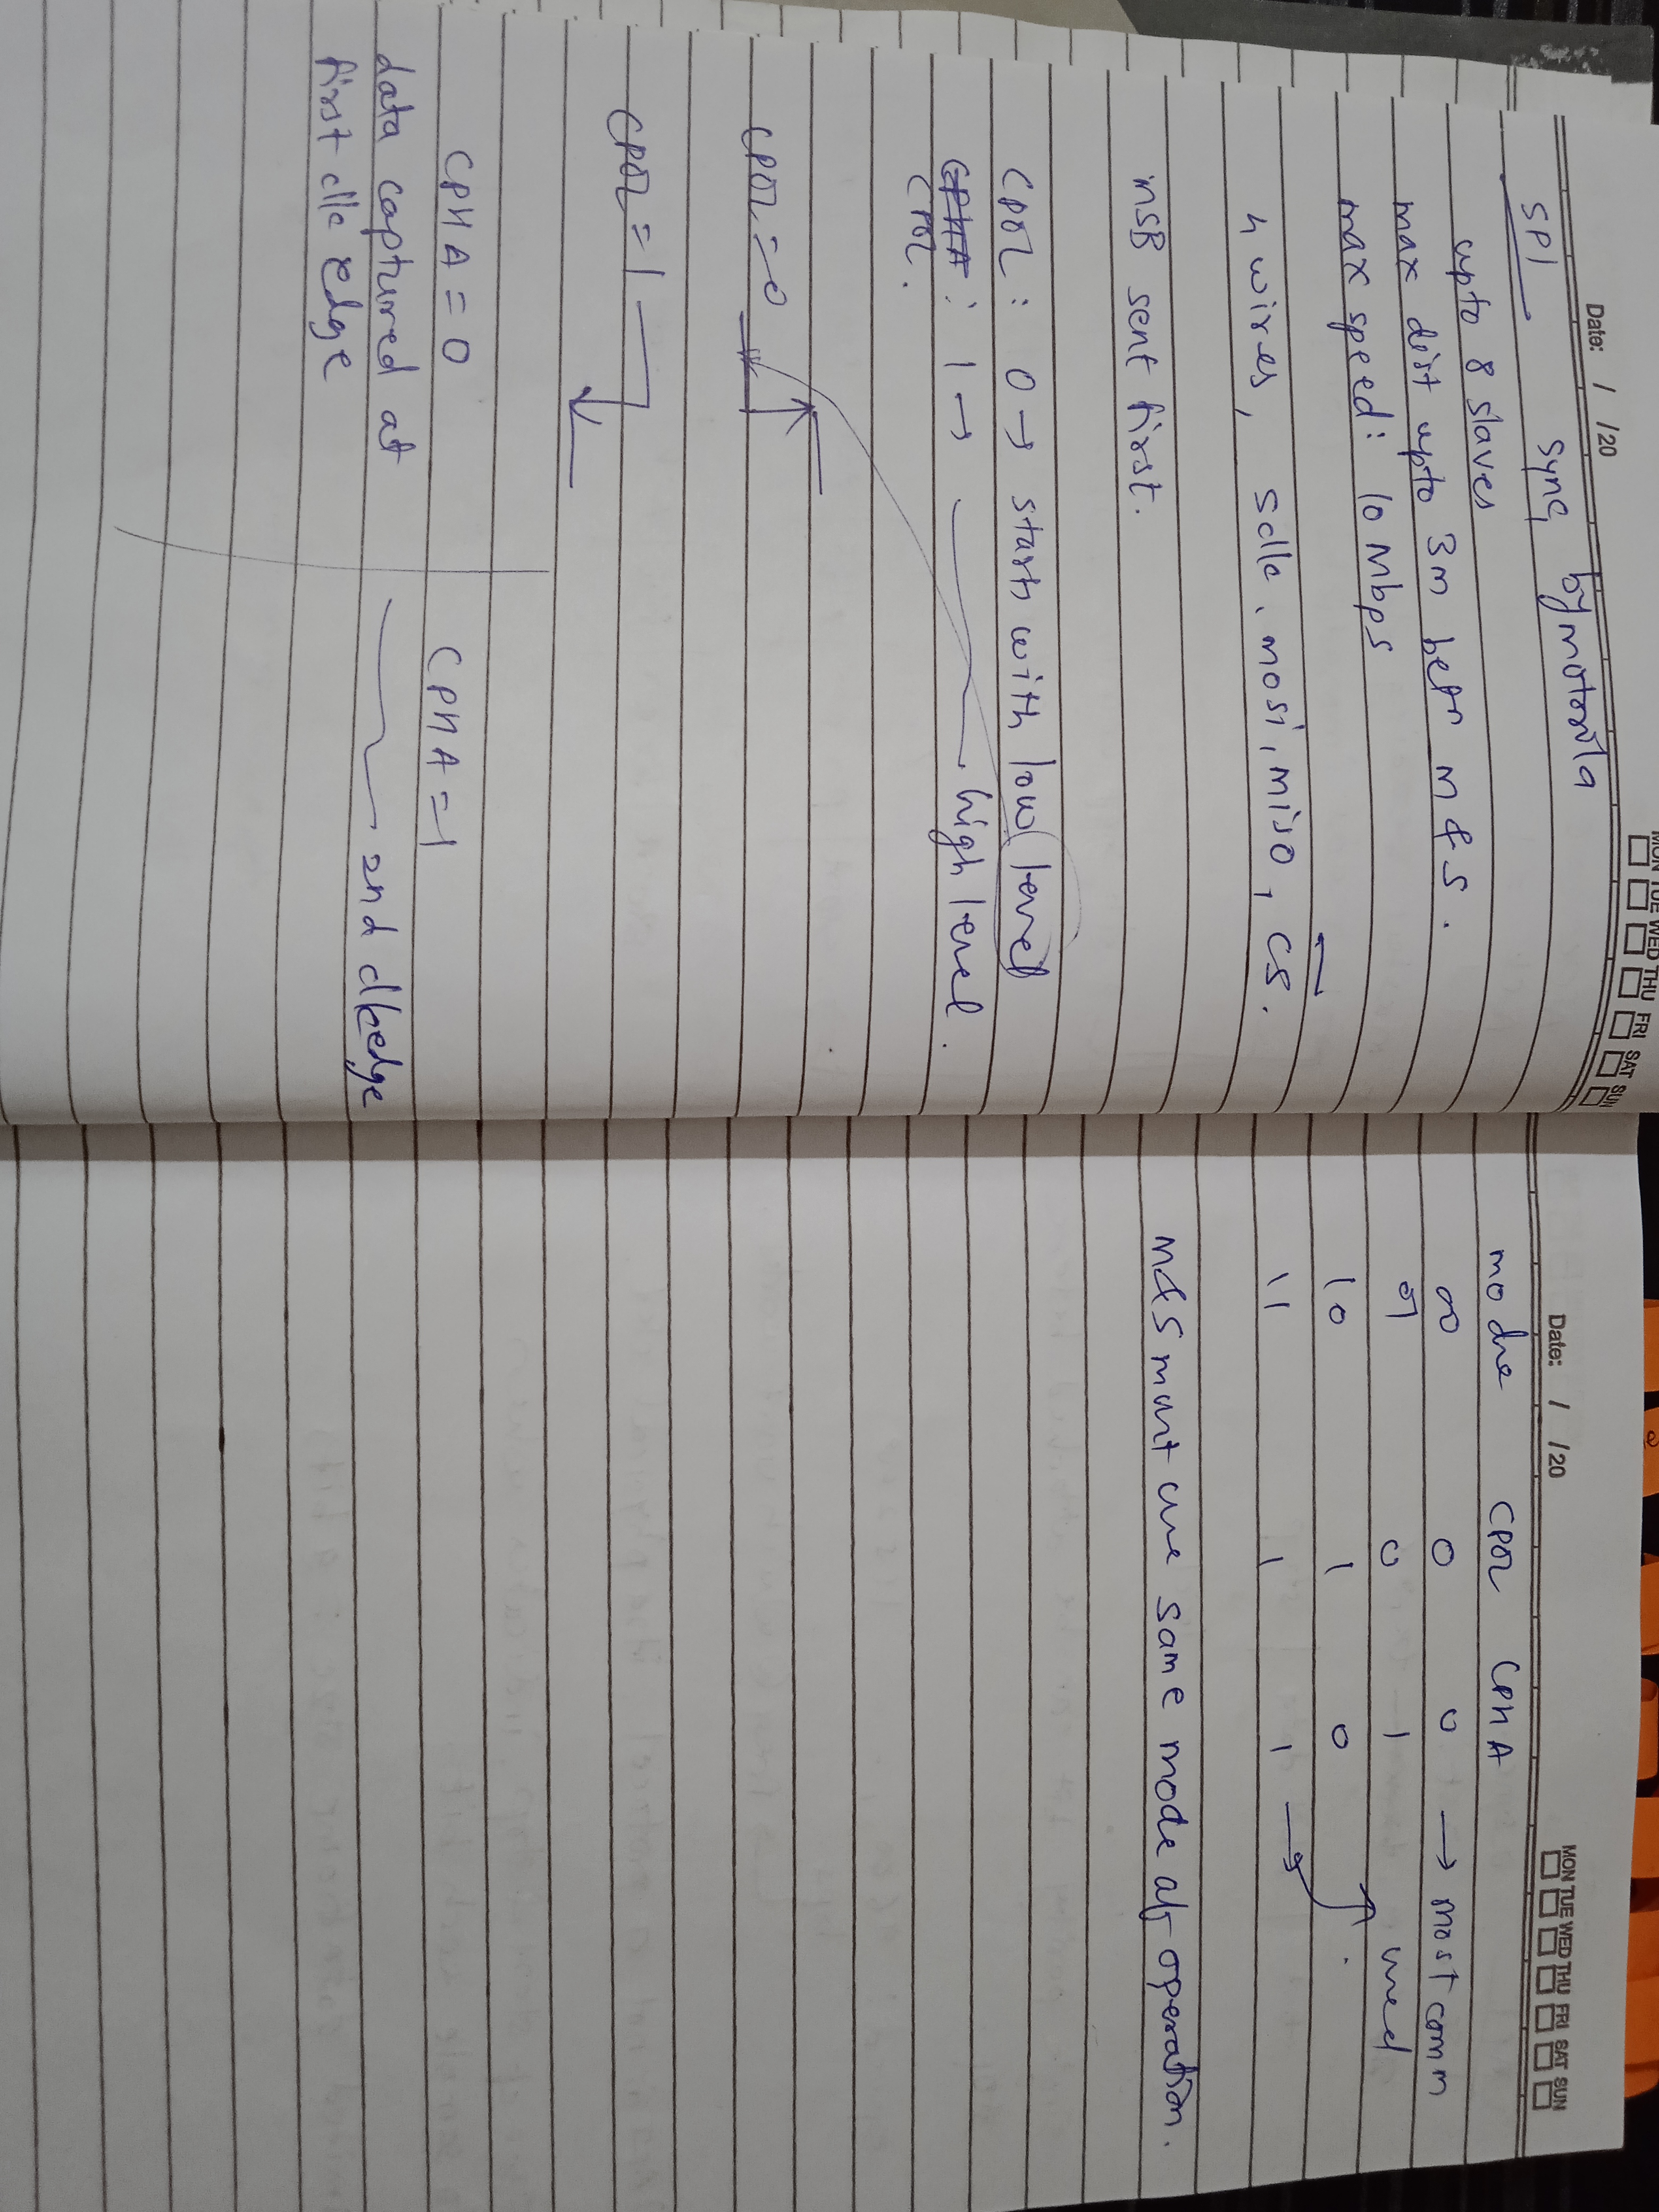 Date: / /20
MON TUE WED THU FRI SAT SUN
SPI sync, by motorola
upto 8 slaves
max dist upto 3m betn m & s.
max speed: 10 Mbps
4 wires, sclk, mosi, miso, CS.
MSB sent first.
CPOL: 0 → starts with low level
CPHA: 1 → high level.
CPOL.
CPOL = 0
CPOL = 1
CPHA = 0 CPHA = 1
data captured at 2nd clk edge
first clk edge
Date: / /20
MON TUE WED THU FRI SAT SUN
mode CPOL CPHA
00 0 0 → most comm
01 0 1 used
10 1 0
11 1 1 →
M & S must use same mode of operation.